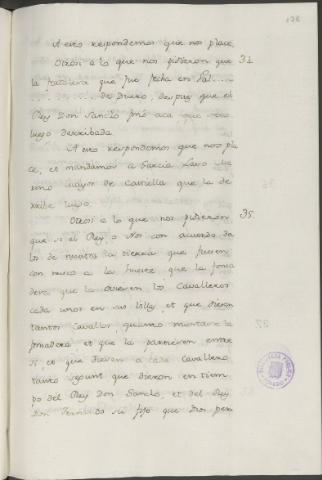 178
A esto respondemos que nos place.
Otrosi a lo que nos pidieron que 31.
la que fue fecha en Val....
........ de Duero, despues que el
Rey Don Sancho finó aca que sea
luego derribada.
A esto respondemos que nos pla
ce, et mandamos a Garcia Laso Me
rino mayor de Castiella que la de
rribe luego.
Otrosi a lo que nos pidieron 35.
que si el Rey o Nos con acuerdo de
los de nuestra tierra que fueren
con nusco a la hueste que la fonsa
dera que la oviesen los Cavalleros
cada unos en sus villas, et que diesen
tantos Cavallos, quanto montare la
fonsadera et que la partiesen entre
si, et que diesen a cada Cavallero
tanto segunt que dieron en tiem
po del Rey Don Sancho, et del Rey
Don Fernando su fijo que Dios per